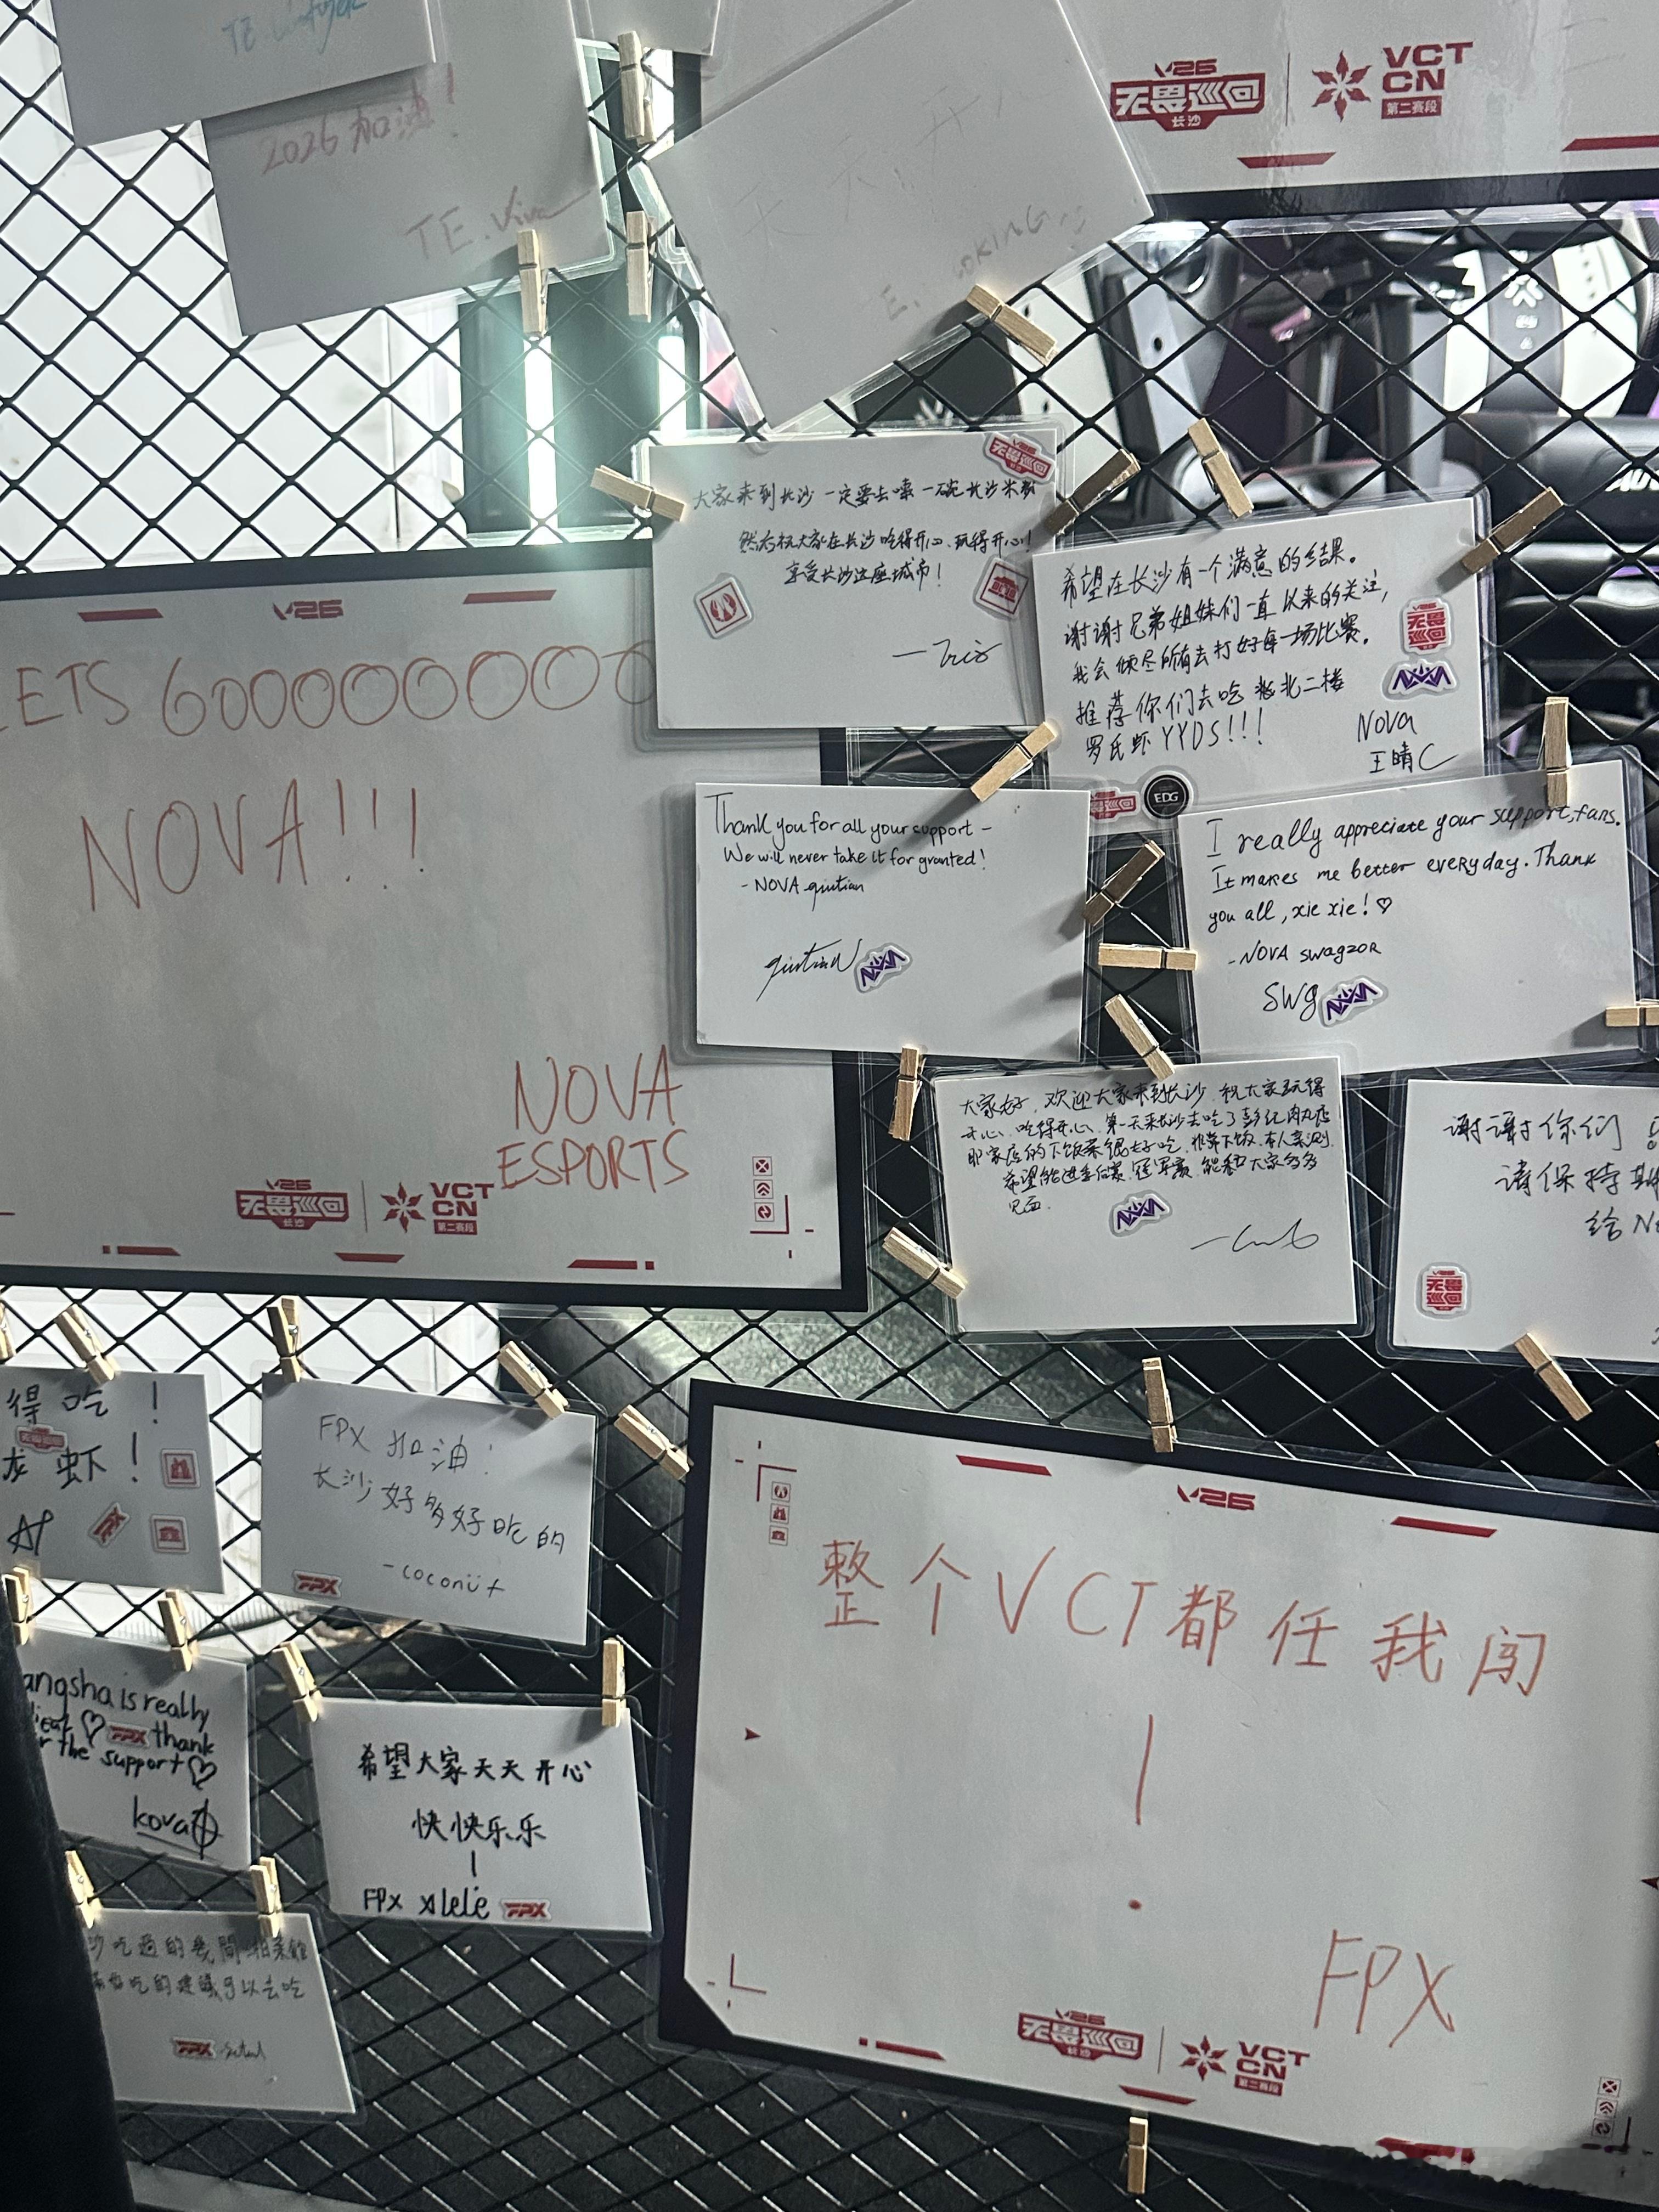 2026加油！
TE.Viva
V26
无畏巡回
长沙
VCT
CN
第二赛段
大家来到长沙一定要去嗦一碗长沙米粉
然后祝大家在长沙吃得开心、玩得开心！
享受长沙这座城市！
无畏巡回
希望在长沙有一个满意的结果。
谢谢兄弟姐妹们一直以来的关注，
我会倾尽所有去打好每一场比赛。
推荐你们去吃 北二楼
罗氏虾YYDS!!!
NOVA
王晴C
V26
无畏
巡回
NOVA
V26
LETS GOOOOOOOOO
NOVA!!!
NOVA
ESPORTS
V26
无畏巡回
长沙
VCT
CN
第二赛段
EDG
Thank you for all your support –
We will never take it for granted!
- NOVA qiutian
qiutian
NOVA
I really appreciate your support, fans.
It makes me better everyday. Thank
you all, xie xie! ♡
-NOVA swagzor
SWg
NOVA
大家好，欢迎大家来到长沙，祝大家玩得
开心、吃得开心、第一天来长沙去吃了彭记肉丸店
那家店的下饭菜很好吃，非常下饭，本人亲测
希望能进季后赛，冠军赛，能和大家多多
见面.
NOVA
谢谢你们
请保持期
给No
V26
无畏
巡回
得吃！
龙虾！
FPX
FPX 加油！
长沙好多好吃的
-coconut
FPX
angsha is really
great ♡ FPX thank
the support ♡
kova
希望大家天天开心
快快乐乐
！
FPX xlele
FPX
沙吃過的幾間湘菜館
吃的建議可以去吃
FPX
V26
整个VCT都任我闯
！
FPX
V26
无畏巡回
长沙
VCT
CN
第二赛段